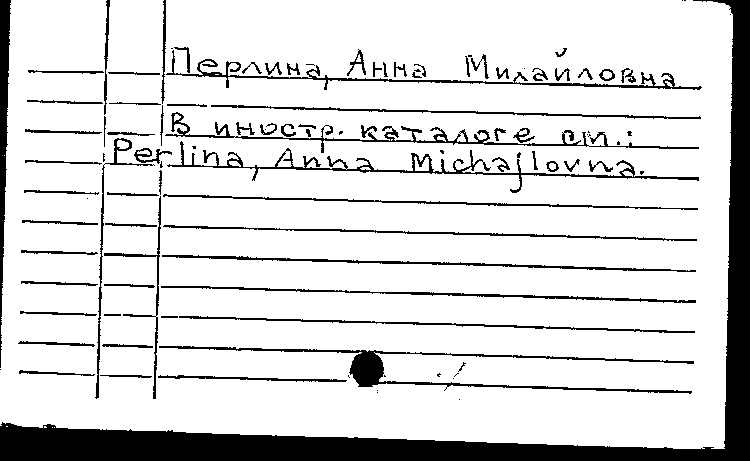 Перлина, Анна Михайловна
В иностр. каталоге см.:
Perlina, Anna Michajlovna.